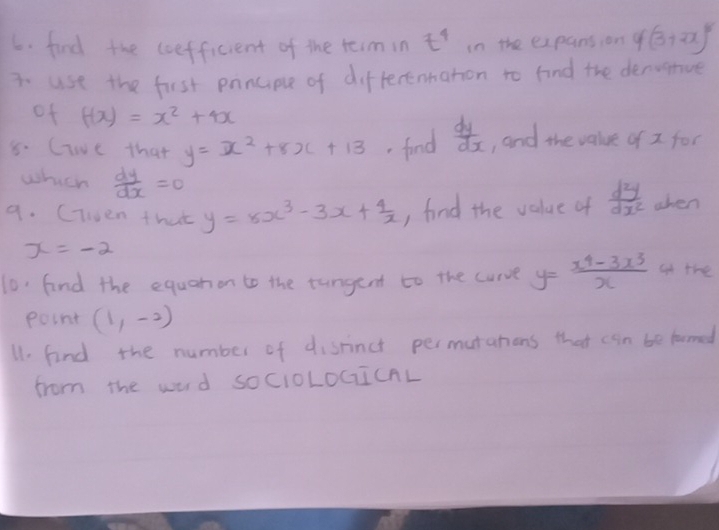 6. find the coefficient of the term in t⁴ in the expansion of (3+2x)
7. use the first principle of differentiation to find the derivative
of f(x) = x² + 4x
8. Give that y = x² + 8x + 13 . find dy/dx, and the value of x for
which dy/dx = 0
9. Given that y = 8x³ - 3x + 4/x, find the value of d²y/dx² when
x = -2
10. find the equation to the tangent to the curve y = x⁴-3x³/x at the
point (1, -2)
11. find the number of distinct permutations that can be formed
from the word SOCIOLOGICAL